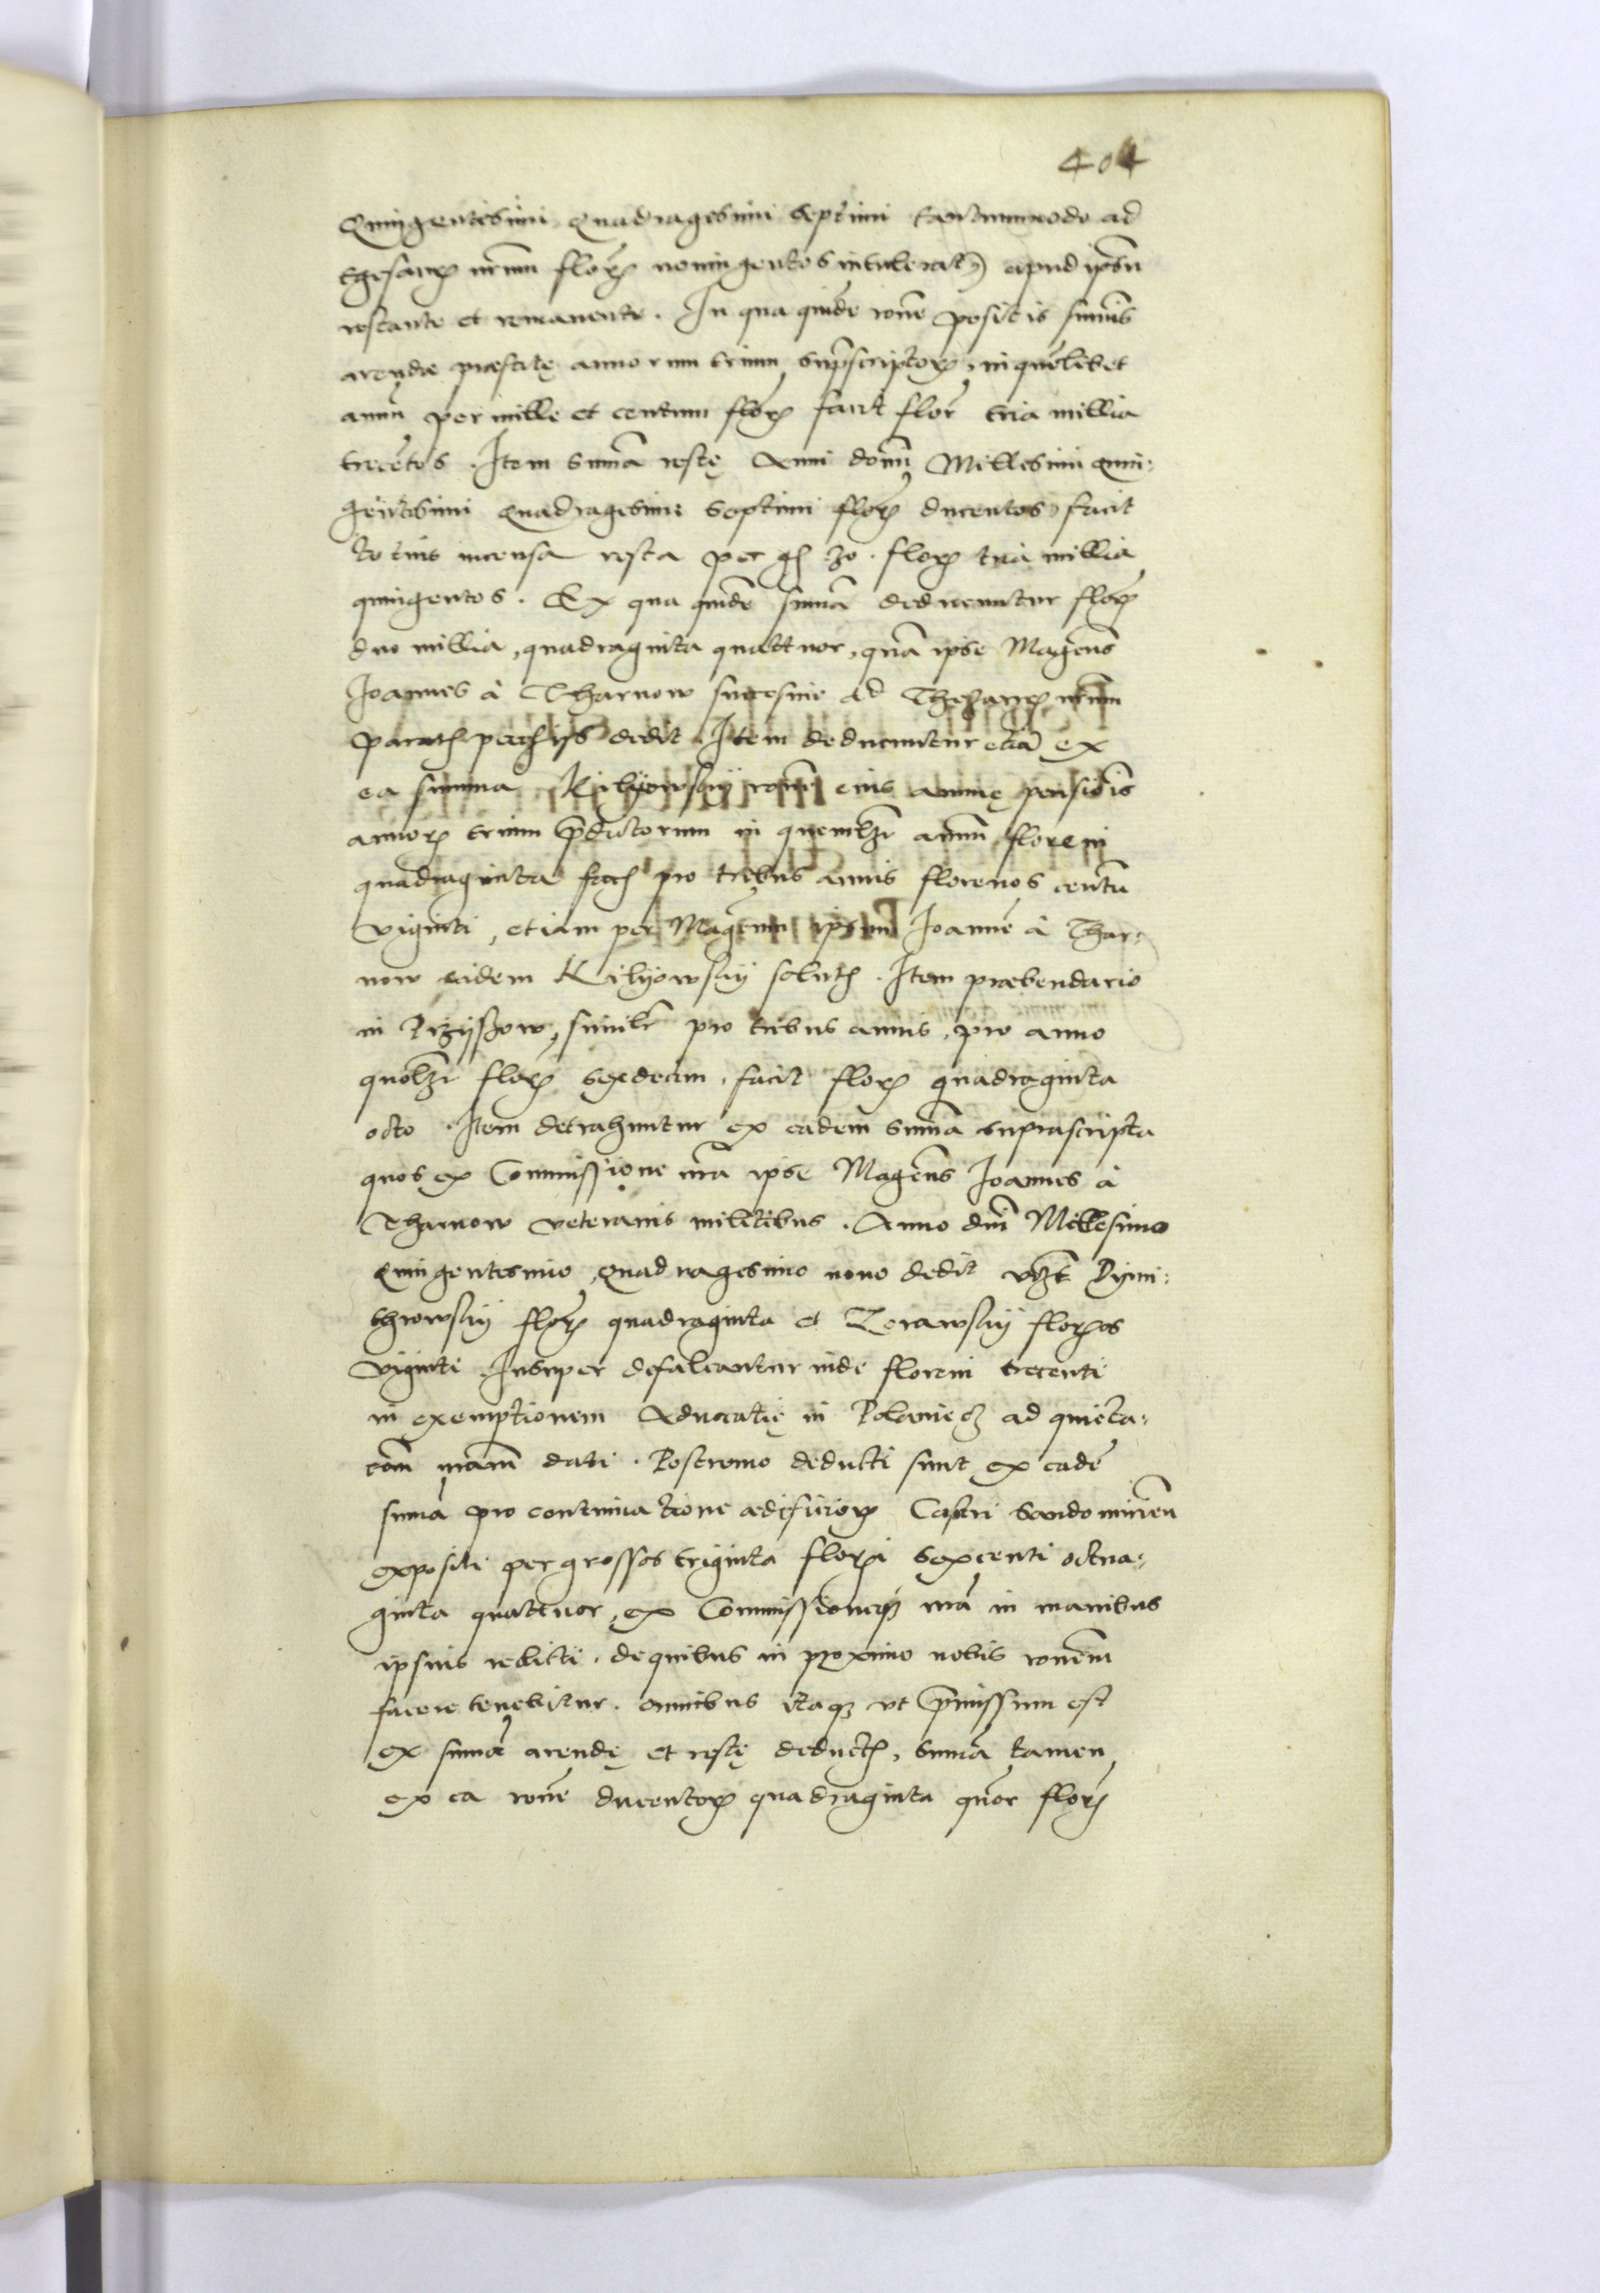 404
Quingentesimi Quadragesimi septimi tantummodo ad
thesaur nrum flor nonningentos intulerat) apud ipsu
restante et remanente. In qua quide rone positis sumis
arendae praescite annorum trium suprascriptor, in quelibet
annu per mille et centum flor facit flor tria millia
trecetos. Item suma reste Anni domi Millesimi quin-
gentesimi Quadragesimi septimi flor ducentos facit
totius incensa resta per gs 30. flor tria millia
quingentos. Ex qua quide suma deducuntur flor
duo millia, quadraginta quattuor, qua ipse Magcus
Joannes à Tharnow ad Thesaur nrum
dedit. Item deducuntur etia ex
ea summa eius annue pensiois
annor trium pdictorum in quemlz annu floreni
quadraginta fac pro tribus annis florenos centu
viginti, etiam per Magcum ipsum Joanne à Thar-
now eidem Kilyowsky solut. Item praebendario
in simil pro tribus annis, pro anno
quolz flor sexdecim, facit flor quadraginta
octo. Item detrahuntur ex eadem suma suprascripta
quos ex Commissione nra ipse Magcus Joannes à
Tharnow veteranis militibus. Anno dni Millesimo
Quingentesimo Quadragesimo nono dedit vz Dymi-
throwsky flor quadraginta et Zorawsky floros
viginti. Insuper defalcantur inde floreni trecenti
in exemptionem Aduocatie in Polaniecz ad quieta-
com nram dati. Postremo deducti sunt ex eade
suma pro continuatione aedificior Castri Sandomirien
expositi per grossos triginta flori sexcenti octua-
ginta quattuor, ex Commissioneq nra in manibus
ipsius relicti. de quibus in proximo nobis ronem
facere tenebitur. omnibus itaq ut pmissum est
ex suma arende et reste deduct, suma tamen
ex ea rone ducentor quadraginta quor flor